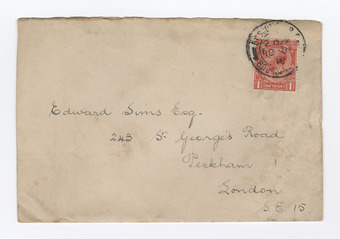 Edward Sims Esq.
243 St. George's Road
Peckham
London
S.E. 15
1 ONE PENNY 1